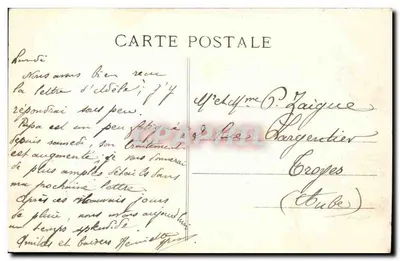 CARTE POSTALE
Lundi
Nous avons bien reçu
la lettre d'Adèle; j'y
répondrai sous peu.
Papa est un peu fatigué
depuis samedi, son traitement
est augmenté; je vous donnerai
de plus amples détails dans
ma prochaine lettre.
Après ces mauvais jours
de pluie, nous avons aujourd'hui
un temps splendide.
Amitiés et baisers
Mr et Mme P. Zaigue
Rue Largentier
Troyes
(Aube)